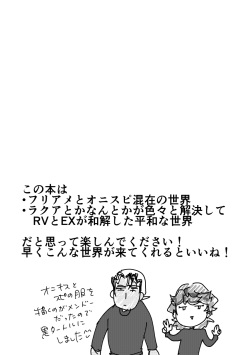 この本は
・フリアメとオニスピ混在の世界
・ラクアとかなんとかが色々と解決して
RVとEXが和解した平和な世界
だと思って楽しんでください！
早くこんな世界が来てくれるといいね！
オニキスと
スピの服を
描くのがメンドー
だったので
黒Oールルに
しました